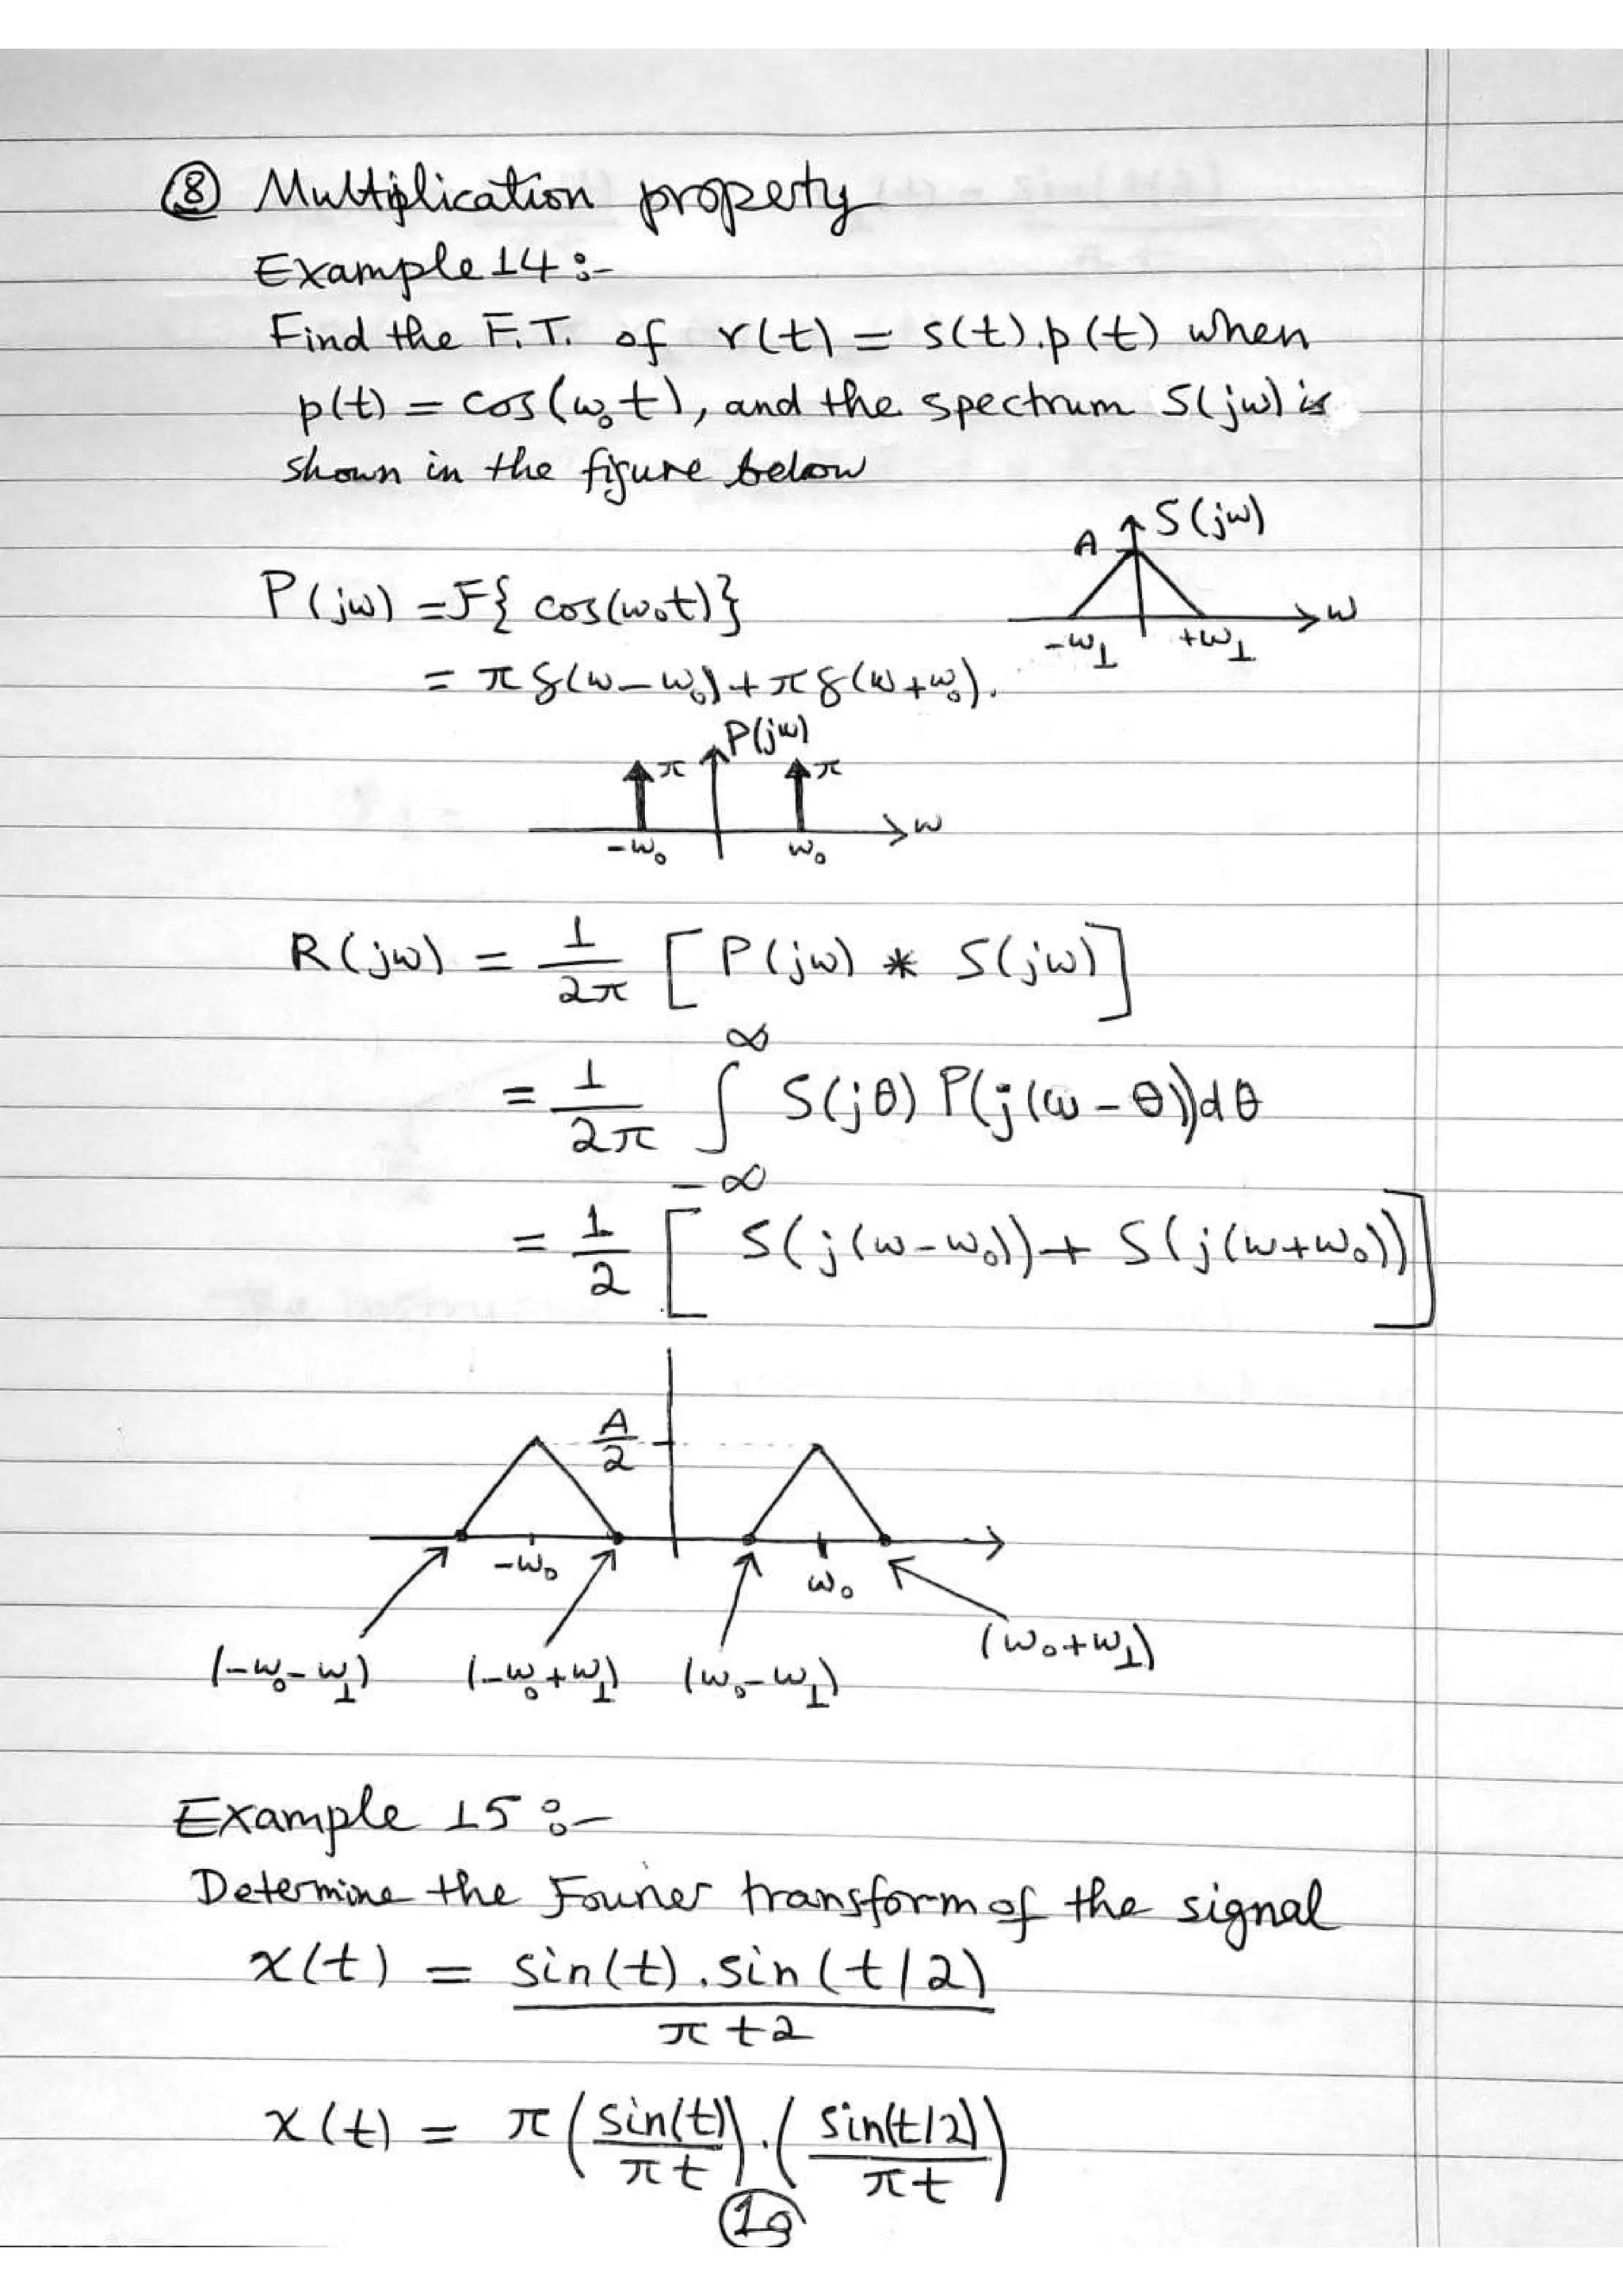 ⑧ Multiplication property
Example 14 :-
Find the F.T. of r(t) = s(t).p(t) when
p(t) = cos(ω₀t), and the spectrum S(jω) is
shown in the figure below
S(jω)
A
ω
-ω₁ +ω₁
P(jω) = F{ cos(ω₀t)}
= π δ(ω-ω₀) + π δ(ω+ω₀).
P(jω)
π π
ω
-ω₀ ω₀
R(jω) = 1/2π [ P(jω) * S(jω)]
= 1/2π ∫_{-∞}^{∞} S(jθ) P(j(ω-θ))dθ
= 1/2 [ S(j(ω-ω₀)) + S(j(ω+ω₀))]
A/2
-ω₀ ω₀
(-ω₀-ω₁) (-ω₀+ω₁) (ω₀-ω₁) (ω₀+ω₁)
Example 15 :-
Determine the Fourier transform of the signal
x(t) = sin(t).sin(t/2) / πt2
x(t) = π (sin(t)/πt).(sin(t/2)/πt)